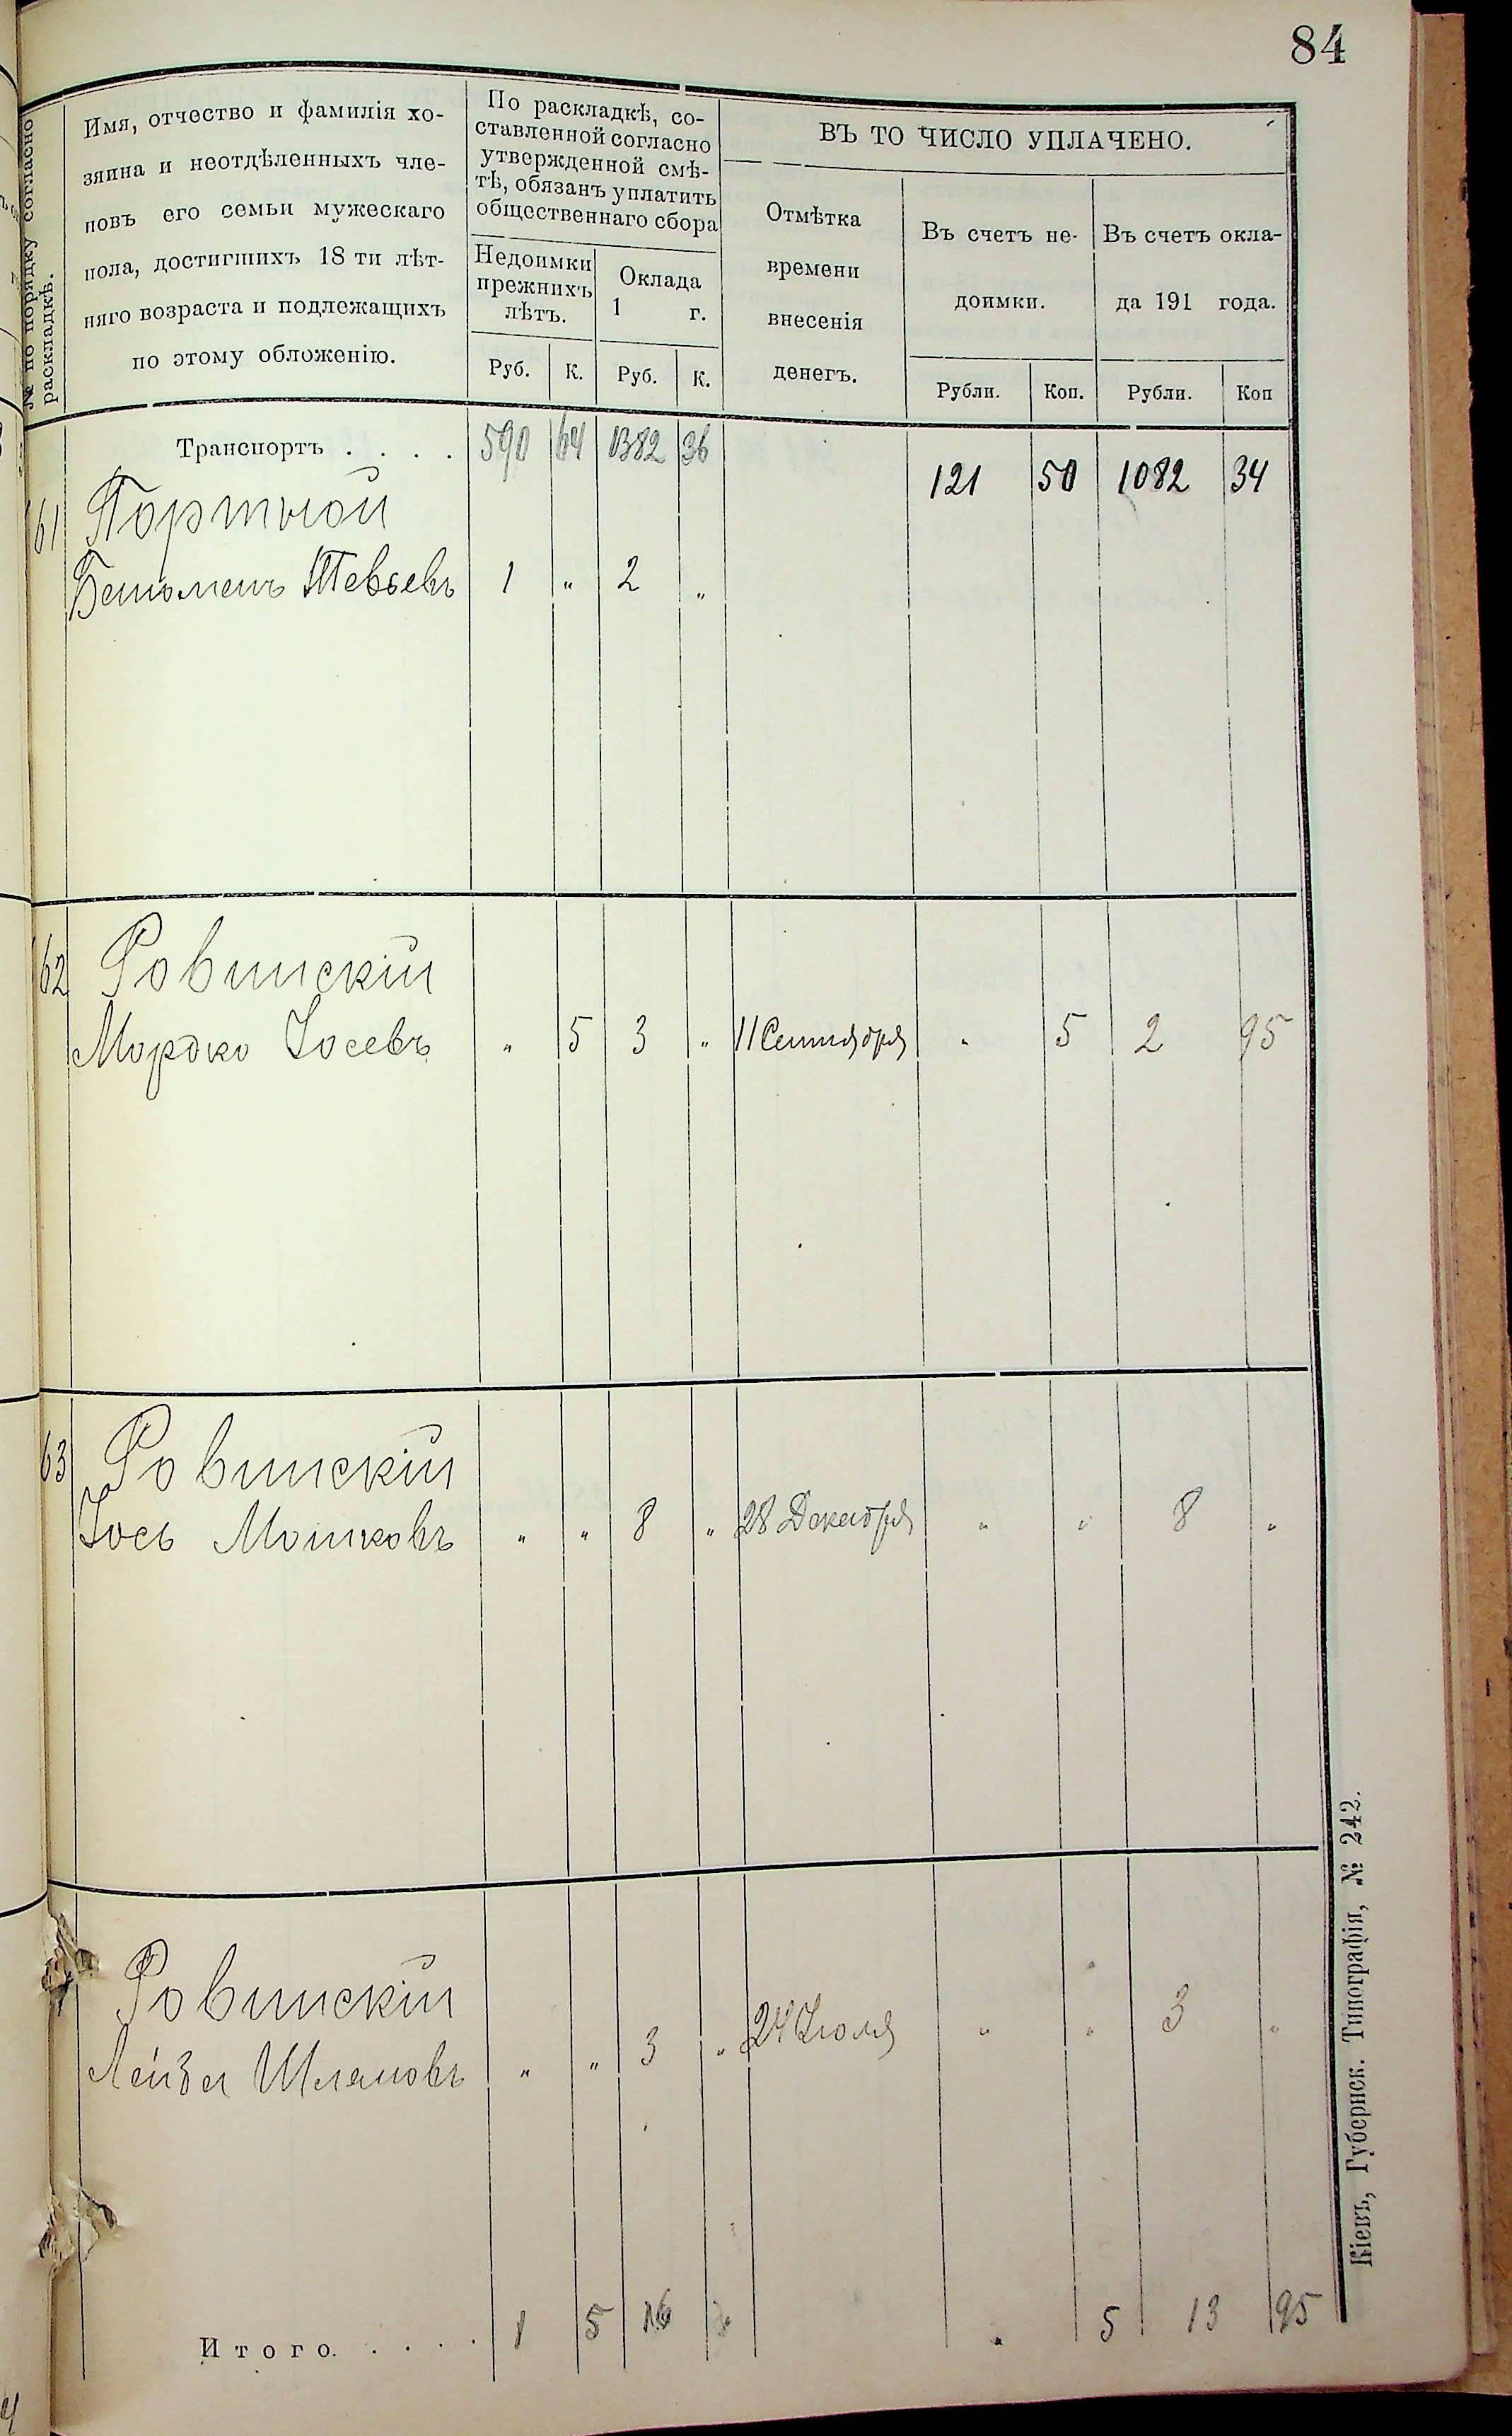 84
№ по порядку согласно
раскладкѣ.
Имя, отчество и фамилія хо-
зяина и неотдѣленныхъ чле-
новъ его семьи мужескаго
пола, достигшихъ 18 ти лѣт-
няго возраста и подлежащихъ
по этому обложенію.
По раскладкѣ, со-
ставленной согласно
утвержденной смѣ-
тѣ, обязанъ уплатить
общественнаго сбора
Недоимки
прежнихъ
лѣтъ.
Оклада
1 г.
Руб. К. Руб. К.
ВЪ ТО ЧИСЛО УПЛАЧЕНО.
Отмѣтка
времени
внесенія
денегъ.
Въ счетъ не-
доимки.
Въ счетъ окла-
да 191 года.
Рубли. Коп. Рубли. Коп
Транспортъ . . . . 590 64 1382 36 121 50 1082 34
61 Портной
Беньоменъ Тевьевъ 1 „ 2 „
62 Ровинскій
Мордко Іосевъ „ 5 3 „ 11 Сентября „ 5 2 95
63 Ровинскій
Іось Мошковъ „ „ 8 „ 28 Декабря „ „ 8 „
Ровинскій
Лейзер Шлемовъ „ „ 3 „ 24 Іюля „ „ 3 „
Итого. . . . . 1 5 16 „ „ 5 13 95
Кіевъ, Губернск. Типографія, № 242.